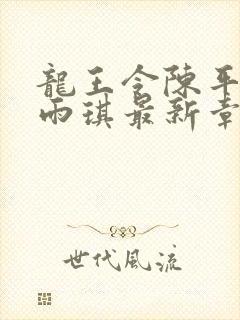 龍王令陳平
雨琪最新章
世代風流